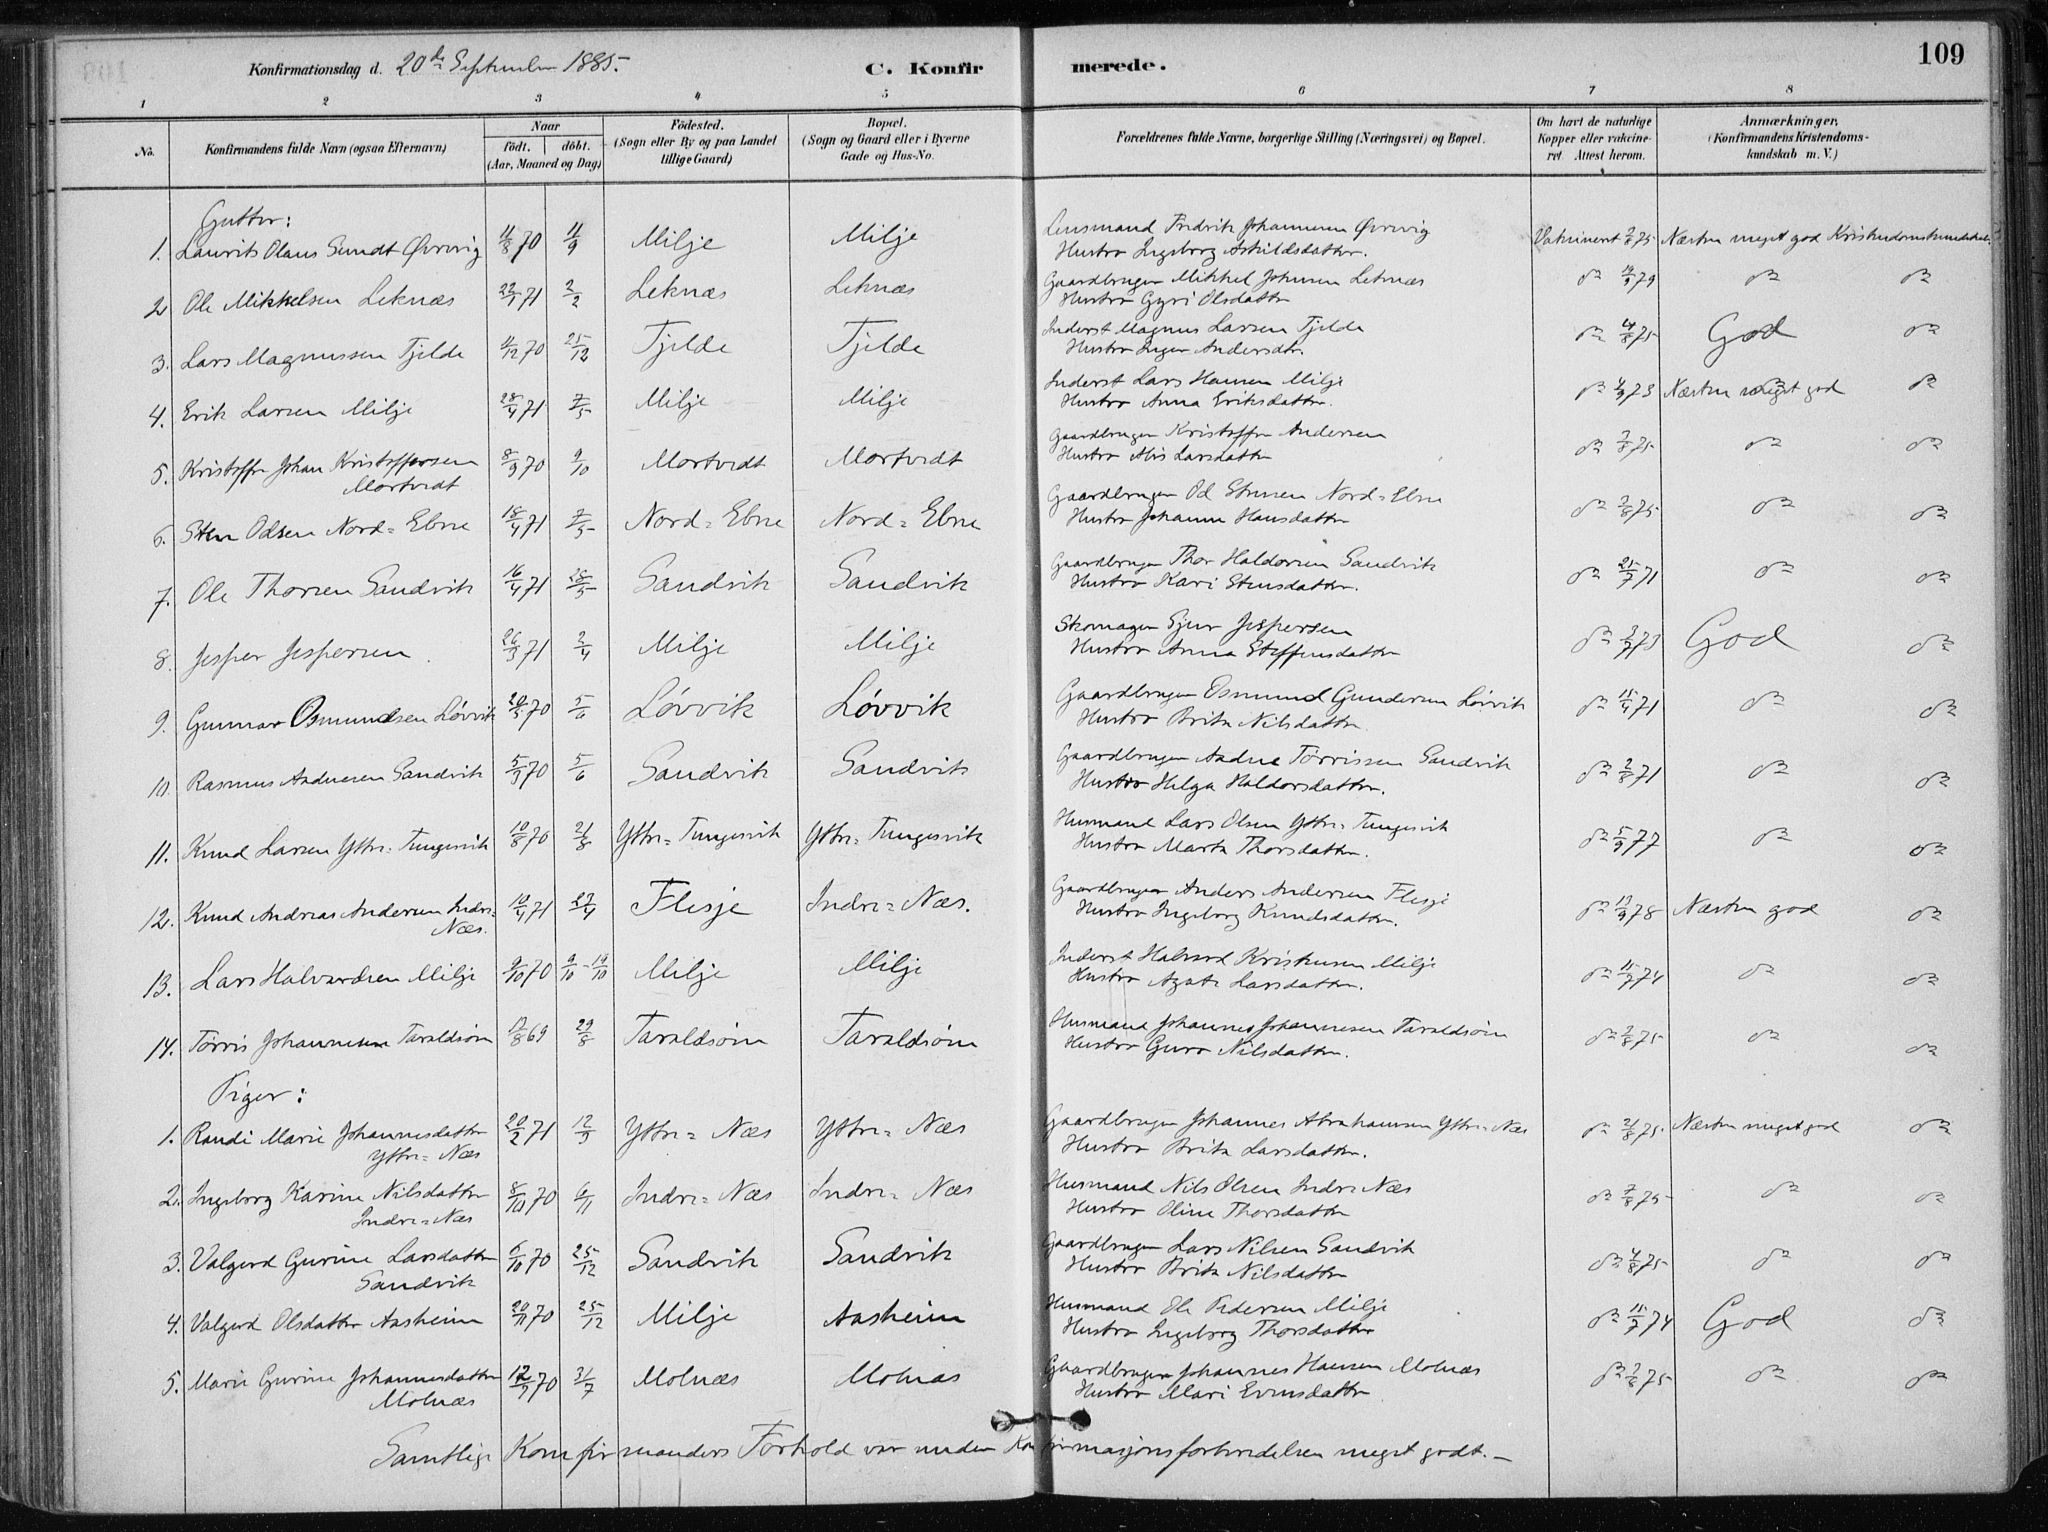 109
Konfirmationsdag d. 20de September 1885.
C. Konfirmerede.
1 2 3 4 5 6 7 8
No.
Konfirmandens fulde Navn (ogsaa Efternavn)
Naar
födt. döbt.
(Aar, Maaned og Dag)
Födested.
(Sogn eller By og paa Landet
tillige Gaard)
Bopæl.
(Sogn og Gaard eller i Byerne
Gade og Hus-No.
Forældrenes fulde Navne, borgerlige Stilling (Næringsvei) og Bopæl.
Om havt de naturlige
Kopper eller vakcine-
ret. Attest herom.
Anmærkninger,
(Konfirmandens Kristendoms-
kundskab m. V.)
Gutter:
1. Laurits Olaus Sundt Øvrevig 11/8 70 11/9 Milje Milje Lensmand Fredrik Johannesen Øvrevig Vakcineret 2/8 75 Næsten meget god Kristendomskundskab
Hustro Ingeborg Askildsdatter.
2. Ole Mikkelsen Leknæs 22/1 71 2/2 Leknæs Leknæs Gaardbruger Mikkel Johnsen Leknæs do 14/9 79 do do
Hustro Gyri Olsdatter
3. Lars Magnussen Tjelde 4/12 70 25/12 Tjelde Tjelde Inderst Magnus Larsen Tjelde do 4/8 75 God do
Hustro Inger Andersdtr
4. Erik Larsen Milje 28/4 71 7/5 Milje Milje Inderst Lars Hansen Milje do 4/9 73 Næsten meget god do
Hustro Anna Eriksdatter.
5. Kristoffer Johan Kristoffersen 8/9 70 9/10 Mortvedt Mortvedt Gaardbruger Kristoffer Andersen do 2/8 75 do do
Mortvedt Hustro Alis Larsdatter
6. Sten Odsen Nord=Ebne 18/4 71 7/5 Nord=Ebne Nord=Ebne Gaardbruger Od Stensen Nord=Ebne do 2/8 75 do do
Hustro Johanne Hansdatter
7. Ole Thorsen Sandvik 16/4 71 28/5 Sandvik Sandvik Gaardbruger Thor Haldorsen Sandvik do 25/7 71 do do
Hustro Kari Stensdatter.
8. Jesper Jespersen 26/3 71 2/4 Milje Milje Skomager Sjur Jespersen do 3/9 73 God do
Hustro Anna Steffensdatter
9. Gunnar Osmundsen Løvvik 20/5 70 5/6 Løvvik Løvvik Gaardbruger Osmund Gundersen Løvvik do 15/4 71 do do
Hustro Brita Nilsdatter
10. Rasmus Andnesen Sandvik 5/3 70 5/6 Sandvik Sandvik Gaardbruger Andne Tørrissen Sandvik do 2/8 71 do do
Hustro Helga Haldorsdatter.
11. Knud Larsen Yttre=Tungesvik 10/8 70 21/8 Yttre=Tungesvik Yttre=Tungesvik Husmand Lars Olsen Yttre=Tungesvik do 5/9 77 do do
Hustro Marta Thorsdatter.
12. Knud Andreas Andersen Indre= 10/4 71 27/4 Flesje Indre=Næs. Gaardbruger Anders Andersen Flesje do 13/9 78 Næsten god do
Næs. Hustro Ingeborg Knudsdatter.
13. Lars Halvardsen Milje 9/10 70 9/10 - 19/10 Milje Milje Inderst Halvard Kristensen Milje do 15/7 74 do do
Hustro Agate Larsdatter.
14. Tørris Johannesen Taraldsøen 17/8 69 29/8 Taraldsøen Taraldsøen Husmand Johannes Johannesen Taraldsøen do 2/8 75 do do
Hustro Guro Nilsdatter.
Piger:
1. Randi Marie Johannesdatter 20/2 71 12/3 Yttre=Næs Yttre=Næs Gaardbruger Johannes Abrahamsen Yttre=Næs do 21/8 75. Næsten meget god do
Yttre=Næs Hustro Brita Larsdatter.
2. Ingeborg Karine Nilsdatter 8/10 70 6/11 Indre=Næs Indre=Næs Husmand Nils Olsen Indre=Næs do 7/8 75 do do
Indre=Næs Hustro Oline Thorsdatter
3. Valgerd Gurine Larsdatter 6/10 70 25/12 Sandvik Sandvik Gaardbruger Lars Nilsen Sandvik do 4/8 75 do do
Sandvik Hustro Brita Nilsdatter
4. Valgerd Olsdatter Aasheim 20/11 70 25/12 Milje Aasheim Husmand Ole Pedersen Milje do 15/7 74 God do
Hustro Ingeborg Thorsdatter
5. Marie Gurine Johannesdatter 12/7 70 31/7 Molnæs Molnæs Gaardbruger Johannes Hansen Molnæs do 2/8 75 do do
Molnæs Hustro Mari Evensdatter
Samtlige Konfirmanders Forhold var under Konfirmasjonsforberedelsen meget godt. —